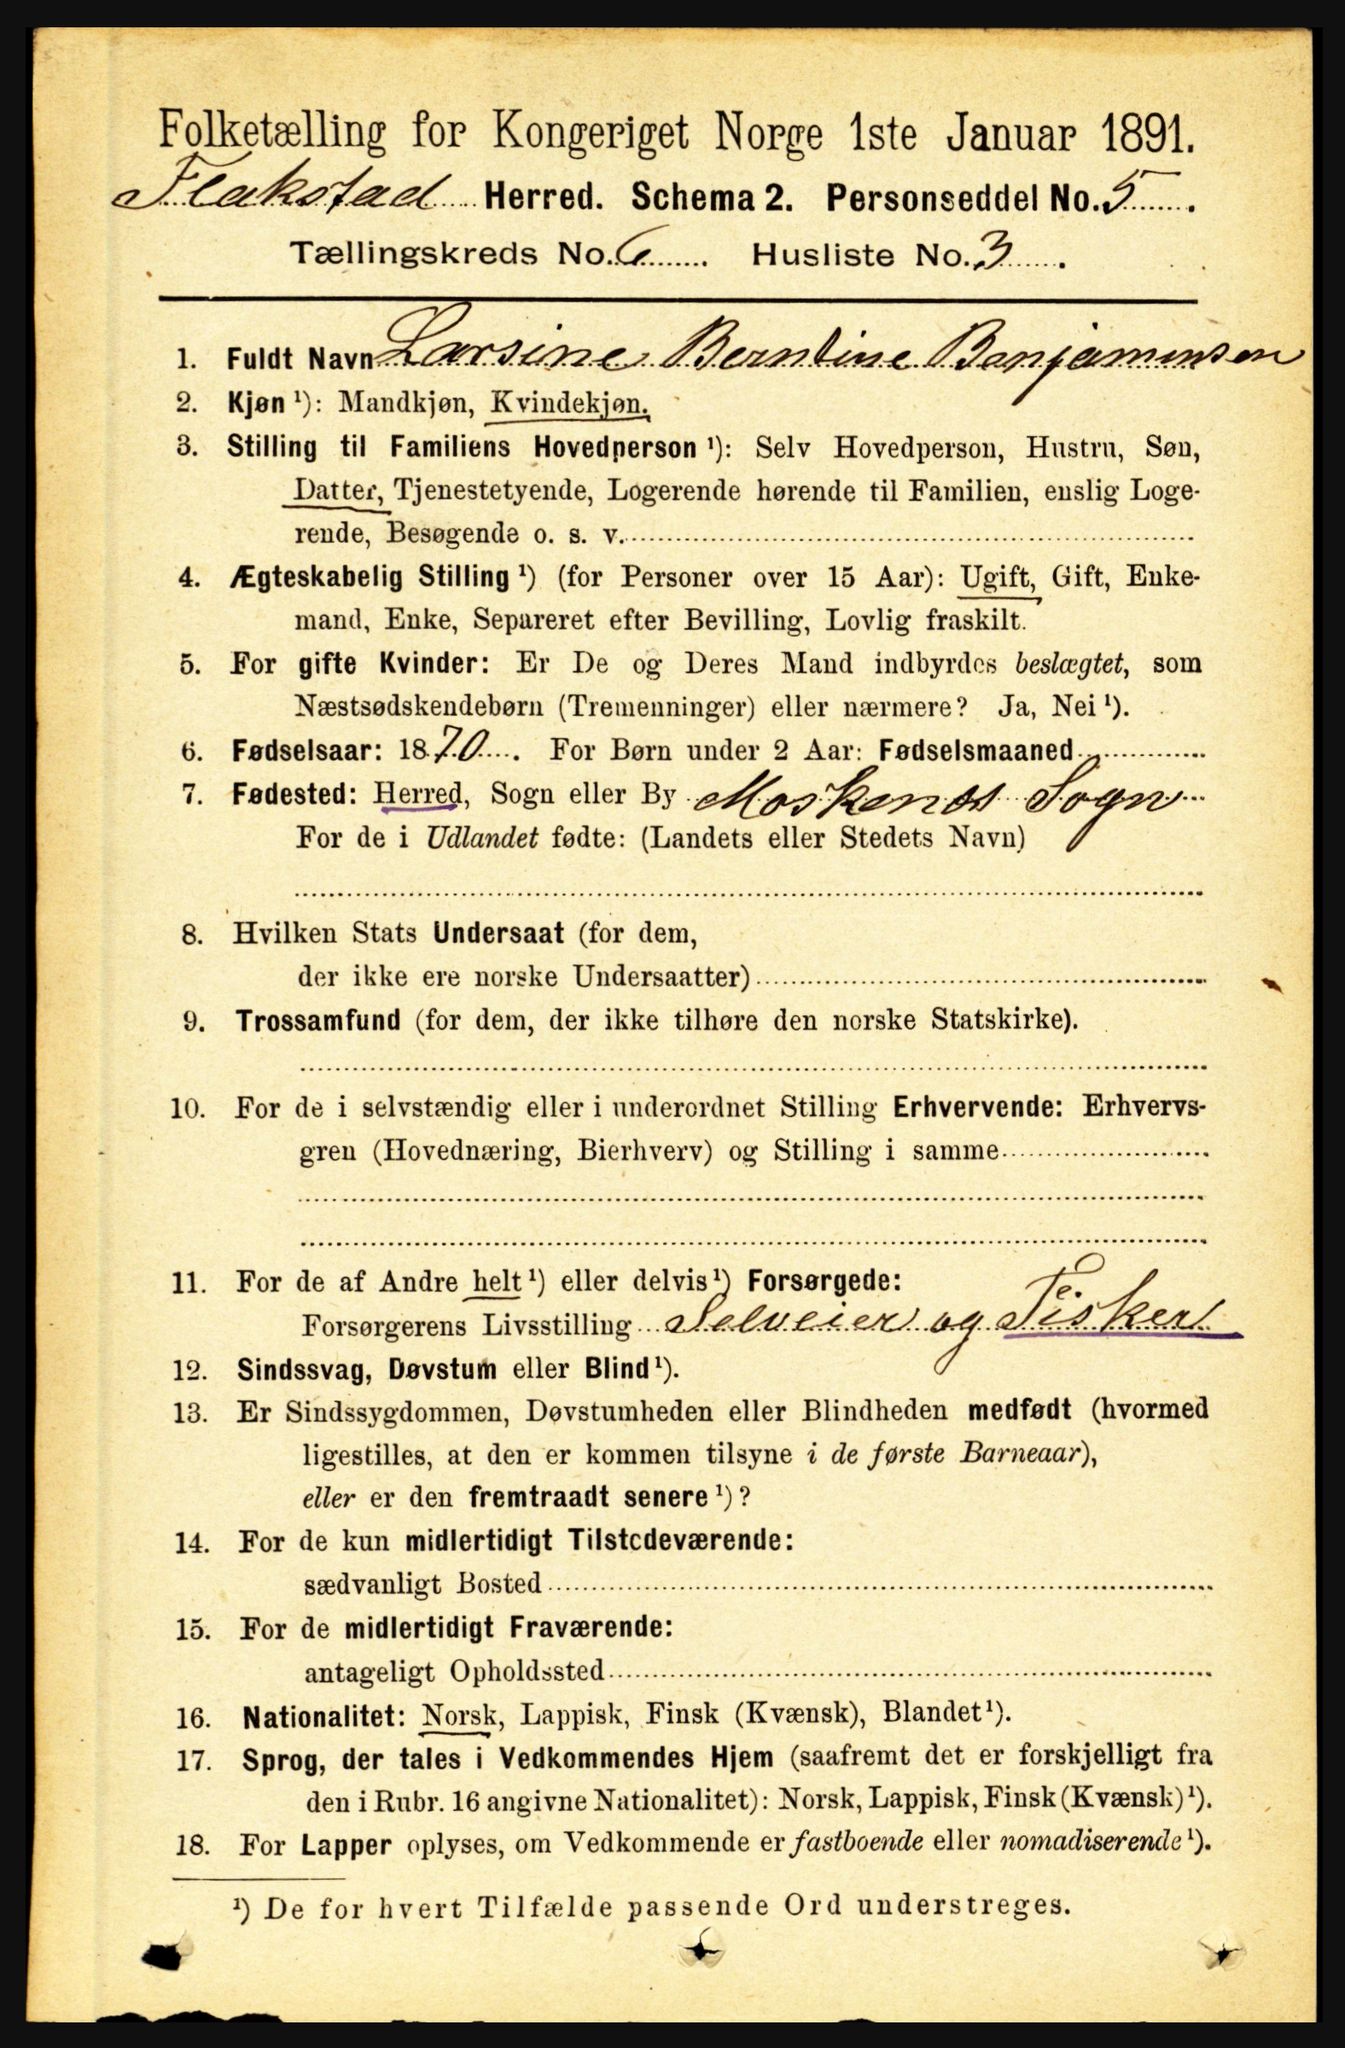 Folketælling for Kongeriget Norge 1ste Januar 1891.
Flakstad Herred. Schema 2. Personseddel No. 5.
Tællingskreds No. 6. Husliste No. 3.
1. Fuldt Navn Larsine Berntine Benjaminsen
2. Kjøn ¹): Mandkjøn, Kvindekjøn.
3. Stilling til Familiens Hovedperson ¹): Selv Hovedperson, Hustru, Søn,
Datter, Tjenestetyende, Logerende hørende til Familien, enslig Loge-
rende, Besøgende o. s. v.
4. Ægteskabelig Stilling ¹) (for Personer over 15 Aar): Ugift, Gift, Enke-
mand, Enke, Separeret efter Bevilling, Lovlig fraskilt.
5. For gifte Kvinder: Er De og Deres Mand indbyrdes beslægtet, som
Næstsødskendebørn (Tremenninger) eller nærmere? Ja, Nei ¹).
6. Fødselsaar: 1870. For Børn under 2 Aar: Fødselsmaaned
7. Fødested: Herred, Sogn eller By Moskenæs Sogn
For de i Udlandet fødte: (Landets eller Stedets Navn)
8. Hvilken Stats Undersaat (for dem,
der ikke ere norske Undersaatter)
9. Trossamfund (for dem, der ikke tilhøre den norske Statskirke).
10. For de i selvstændig eller i underordnet Stilling Erhvervende: Erhvervs-
gren (Hovednæring, Bierhverv) og Stilling i samme
11. For de af Andre helt ¹) eller delvis ¹) Forsørgede:
Forsørgerens Livsstilling Selveier og Fisker
12. Sindssvag, Døvstum eller Blind ¹).
13. Er Sindssygdommen, Døvstumheden eller Blindheden medfødt (hvormed
ligestilles, at den er kommen tilsyne i de første Barneaar),
eller er den fremtraadt senere ¹)?
14. For de kun midlertidigt Tilstedeværende:
sædvanligt Bosted
15. For de midlertidigt Fraværende:
antageligt Opholdssted
16. Nationalitet: Norsk, Lappisk, Finsk (Kvænsk), Blandet ¹).
17. Sprog, der tales i Vedkommendes Hjem (saafremt det er forskjelligt fra
den i Rubr. 16 angivne Nationalitet): Norsk, Lappisk, Finsk (Kvænsk) ¹).
18. For Lapper oplyses, om Vedkommende er fastboende eller nomadiserende ¹).
¹) De for hvert Tilfælde passende Ord understreges.